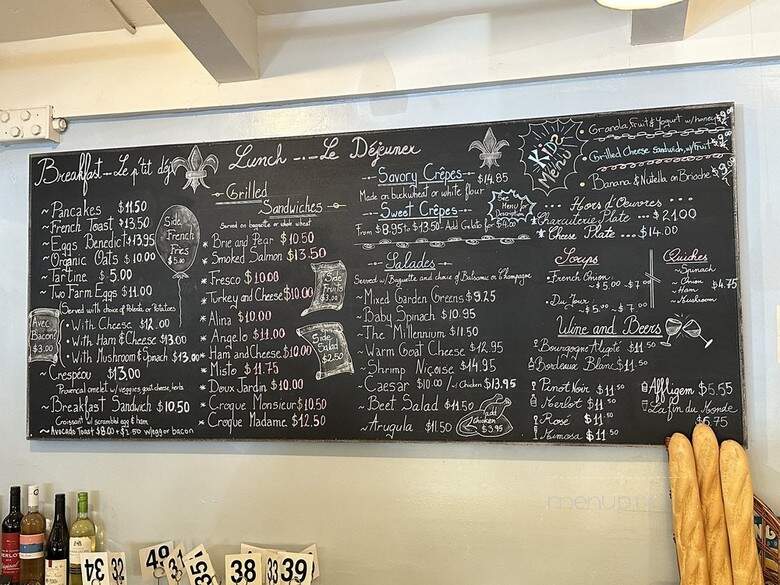 Breakfast -- Le p'tit déj
~ Pancakes $11.50
~ French Toast $13.50
~ Eggs Benedict $13.95
~ Organic Oats $10.00
~ Tartine $5.00
~ Two Farm Eggs $11.00
Served with choice of Polenta or Potatoes
• With Cheese $12.00
• With Ham & Cheese $13.00
• With Mushroom & Spinach $13.00
~ Crespéou $13.00
Provencal omelet w/veggies, goat cheese, herbs
~ Breakfast Sandwich $10.50
Croissant w/ scrambled egg & ham
~ Avocado Toast $8.00 + $2.50 w/egg or bacon
Avec
Bacon!
$3.00
Side
French
Fries
$5.00
Lunch --- Le Déjeuner
Grilled
Sandwiches
Served on baguette or whole wheat
* Brie and Pear $10.50
* Smoked Salmon $13.50
* Fresco $10.00
* Turkey and Cheese $10.00
* Alina $10.00
* Angelo $11.00
* Ham and Cheese $10.00
* Misto $11.75
* Doux Jardin $10.00
* Croque Monsieur $10.50
* Croque Madame $12.50
Side
Fruits
$3.00
Side
Salad
$2.50
Savory Crêpes $14.85
Made on buckwheat or white flour
Sweet Crêpes
From $8.95 to $13.50 - Add Gelato for $4.00
See
Menu for
Description
Salades
Served w/ Baguette and choice of Balsamic or Champagne
~ Mixed Garden Greens $9.25
~ Baby Spinach $10.95
~ The Millennium $11.50
~ Warm Goat Cheese $12.95
~ Shrimp Niçoise $14.95
~ Caesar $10.00 w/ Chicken $13.95
~ Beet Salad $11.50
~ Arugula $11.50
add
Chicken
$3.95
Kids
Menu
• Granola, Fruit & Yogurt w/honey
• Grilled Cheese Sandwich, w/fruit
• Banana & Nutella on Brioche
Hors d'Oeuvres
* Charcuterie Plate $21.00
* Cheese Plate $14.00
Soups
• French Onion
~ $5.00 ~ $7.00
• Du Jour
~ $5.00 ~ $7.00
Quiches
~ Spinach
~ Onion
Ham
~ Mushroom
$4.75
Wine and Beers
Bourgogne Aligoté $11.50
Bordeaux Blanc $11.50
Pinot Noir $11.50
Merlot $11.50
Rosé $11.50
Mimosa $11.50
Affligem $5.55
La fin du Monde
$6.75
MERLOT
34
32
49
31
35
38
33
39